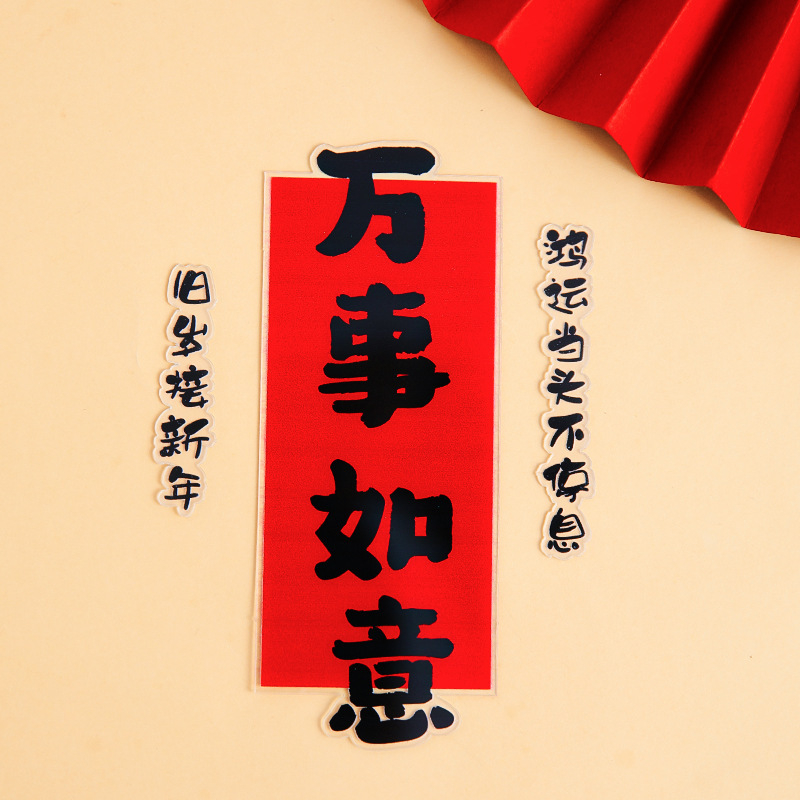 鸿运当头不停息
万事如意
旧岁接新年